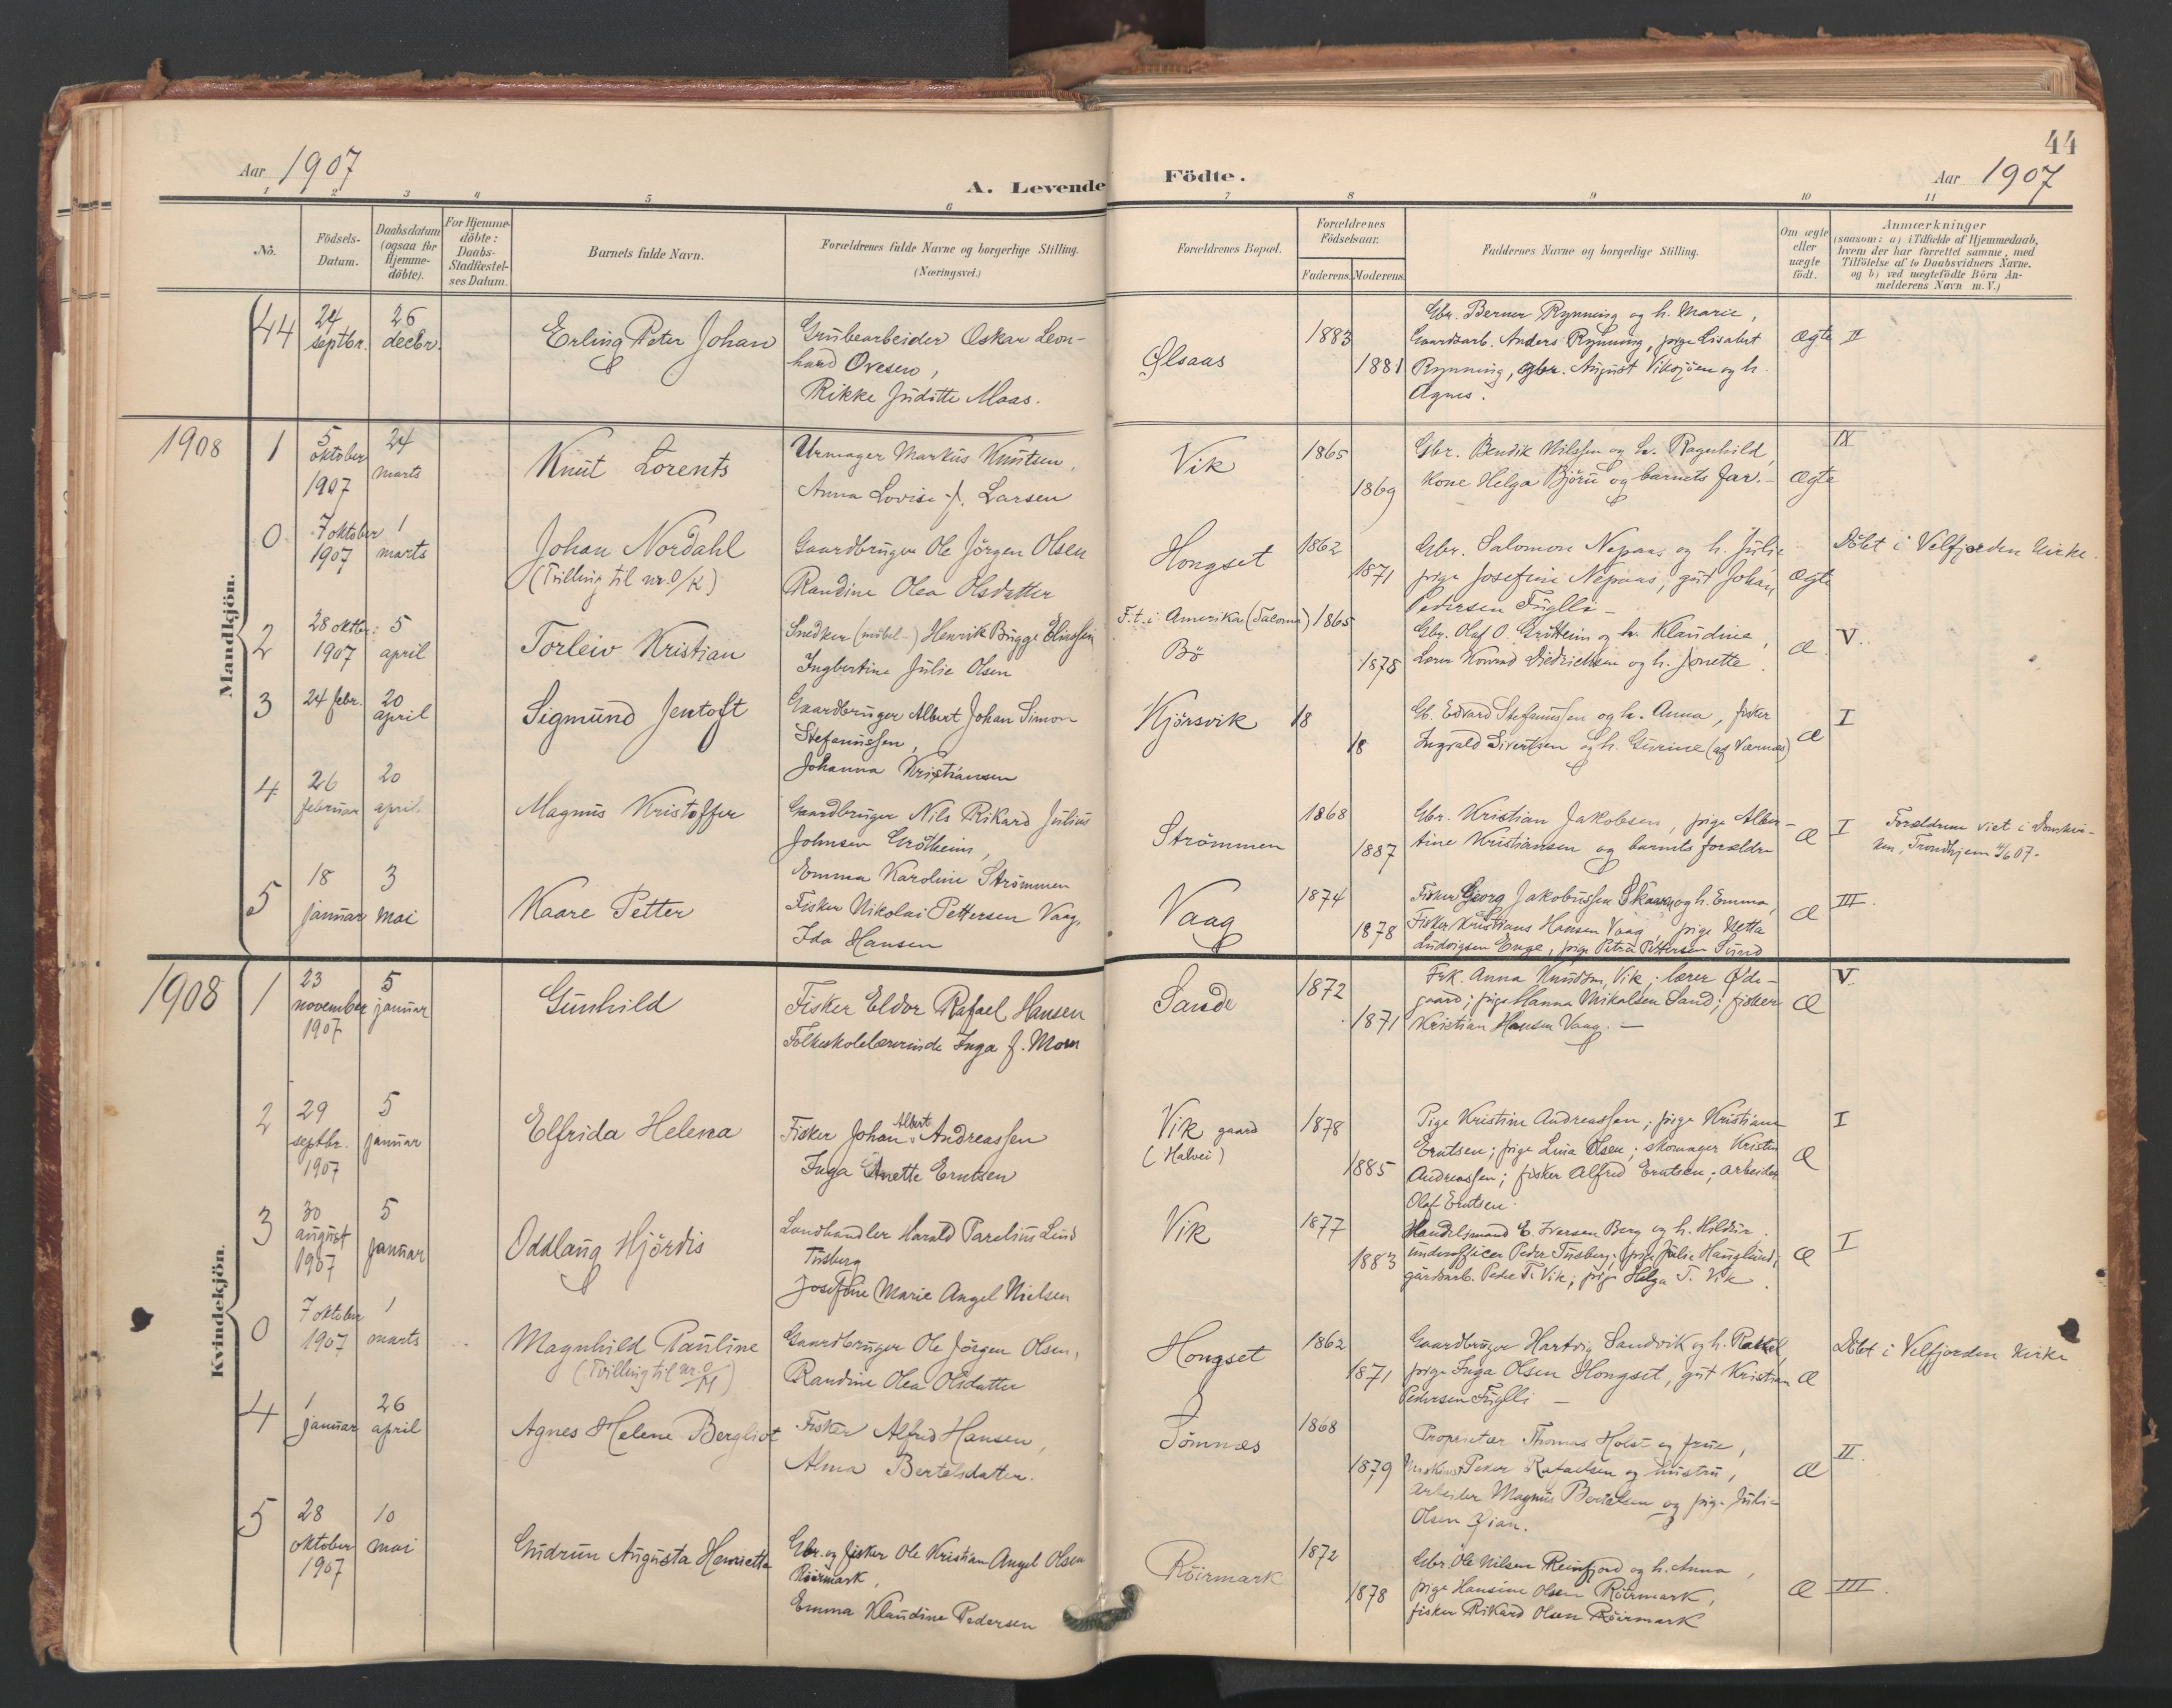 44
Aar 1907
A. Levende Födte.
Aar 1907
1 2 3 4 5 6 7 8 9 10 11
No.
Födsels-
Datum.
Daabsdatum
(ogsaa for
Hjemme-
döbte).
For Hjemme-
döbte:
Daabs-
Stadfæstel-
ses Datum.
Barnets fulde Navn.
Forældrenes fulde Navne og borgerlige Stilling.
(Næringsvei.)
Forældrenes Bopæl.
Forældrenes
Födselsaar.
Faderens. Moderens.
Faddernes Navne og borgerlige Stilling.
Om ægte
eller
uægte
födt.
Anmærkninger
(saasom: a) i Tilfælde af Hjemmedaab,
hvem der har forrettet samme, med
Tilföielse af to Daabsvidners Navne.
og b) ved uægtefödte Börn An-
melderens Navn m.V.)
Mandkjön.
44
24
septbr.
26
decbr.
Erling Peter Johan
Grubearbeider Oskar Leon-
hard Ovesen,
Rikke Juditte Maas.
Ølsaas
1883
1881
Gbr. Berner Rynning og h. Marie,
Gaardsarb. Anders Rynning, pige Lisabet
Rynning, gbr. August Viksjöen og h.
Agnes.
ægte
II
1908
1
5
oktober
1907
24
marts
Knut Lorents
Urmager Markus Knutsen,
Anna Lovise f. Larsen
Vik
1865
1869
Gbr. Bendik Nilssen og h. Ragnhild,
kone Helga Björu og barnets far.
ægte
IX
0
7 oktober
1907
1
marts
Johan Nordahl
(Tvilling til nr. 0/K)
Gaardbruger Ole Jörgen Olsen
Randine Olea Olsdatter
Hongset
1862
1871
Gbr. Salomon Nepaas og h. Julie
pige Josefine Nepaas, gut Johan
Pedersen Fuglli –
ægte
Döbt i Velfjorden kirke.
2
28 oktbr.
1907
5
april
Torleiv Kristian
Snedker (möbel-) Henrik Bugge Elinssen
Ingbertine Julie Olsen
F.t. i Amerika (Tacoma)
Bö
1865
1878
Gbr. Olaf O. Gröttheim og h. Klaudine,
Lærer Konrad Diedrichsen og h. Jonette.
Æ
V.
3
24 febr.
20
april
Sigmund Jentoft
Gaardbruger Albert Johan Simon
Stefanussen,
Johanna Kristiansen
Kjörsvik
18
18
Gb. Edvard Stefanussen og h. Anna, fisker
Ingvald Sivertsen og h. Gurine (af Værnæs)
Æ
I
4
26
februar
20
april.
Magnus Kristoffer
Gaardbruger Nils Rikard Julius
Johnsen Grötheim,
Emma Karoline Strömmen
Strömmen
1868
1887
Gbr. Kristian Jakobsen, pige Alber-
tine Kristiansen og barnets forældre
Æ
I
Forældrene viet i Domkir-
ken, Trondhjem 4/6 07.
5
18
januar
3
mai
Kaare Petter
Fisker Nikolai Pettersen Vaag,
Ida Hansen
Vaag
1874
1878
Fisker Georg Jakobussen Skaren og h. Emma,
Fisker Kristians Hansen Vaag, pige Netta
Ludvigsen Enge, pige Petra Pettersen Sund
Æ
III.
Kvindekjön.
1908
1
23
november
1907
5
januar
Gunhild
Fisker Eldor Rafael Hansen
Folkeskolelærerinde Inga f. Moen
Sande
1872
1871
Frk. Anna Knudtsen, Vik; lærer Øde-
gaard; pige Hanna Mikalsen Sand; fisker
Kristian Hansen Vaag. –
Æ
V.
2
29
septbr.
1907
5
januar
Elfrida Helena
Fisker Johan Albert Andreassen
Inga Anette Erntsen
Vik gaard
(Halvei)
1878
1885
Pige Kristine Andreassen; pige Kristiane
Erntsen; pige Lina Olsen; skomager Kristen
Andreassen; fisker Alfred Erntsen; arbeider
Olaf Erntsen.
Æ
I
3
30
august
1907
5
januar
Oddlaug Hjördis
Landhandler Harald Parelius Lind
Tusberg
Josefine Marie Angel Nielsen
Vik
1877
1883
Handelsmand E. Iversen Berg og h. Hildur.
underofficer Peder Tusberg; pige Julie Hauglund;
gårdsarb. Peder T. Vik; pige Helga T. Vik.
Æ
I
0
7 oktober
1907
1
marts
Magnhild Pauline
(Tvilling til nr. 0/M)
Gaardbruger Ole Jörgen Olsen,
Randine Olea Olsdatter
Hongset
1862
1871
Gaardbruger Hartvig Sandvik og h. Rakkel,
pige Inga Olsen Hongset, gut Kristian
Pedersen Fuglli –
Æ
Döbt i Velfjorden kirke
4
1
januar
26
april
Agnes Helene Bergliot
Fisker Alfred Hansen,
Alma Bertelsdatter.
Sömnæs
1868
1879
Proprietær Thomas Holst og frue,
Peder Rafaelsen og hustru,
arbeider Magnus Bertelsen og pige Julie
Olsen Qian.
Æ
II.
5
28
oktober
1907
10
mai
Gudrun Augusta Henriette
Gbr. og fisker Ole Kristian Angel Olsen
Röirmark,
Emma Klaudine Pedersen
Röirmark
1872
1878
Gbr. Ole Nilsen Reinfjord og h. Anna,
pige Hansine Olsen Röirmark,
fisker Rikard Olsen Röirmark
Æ
III.